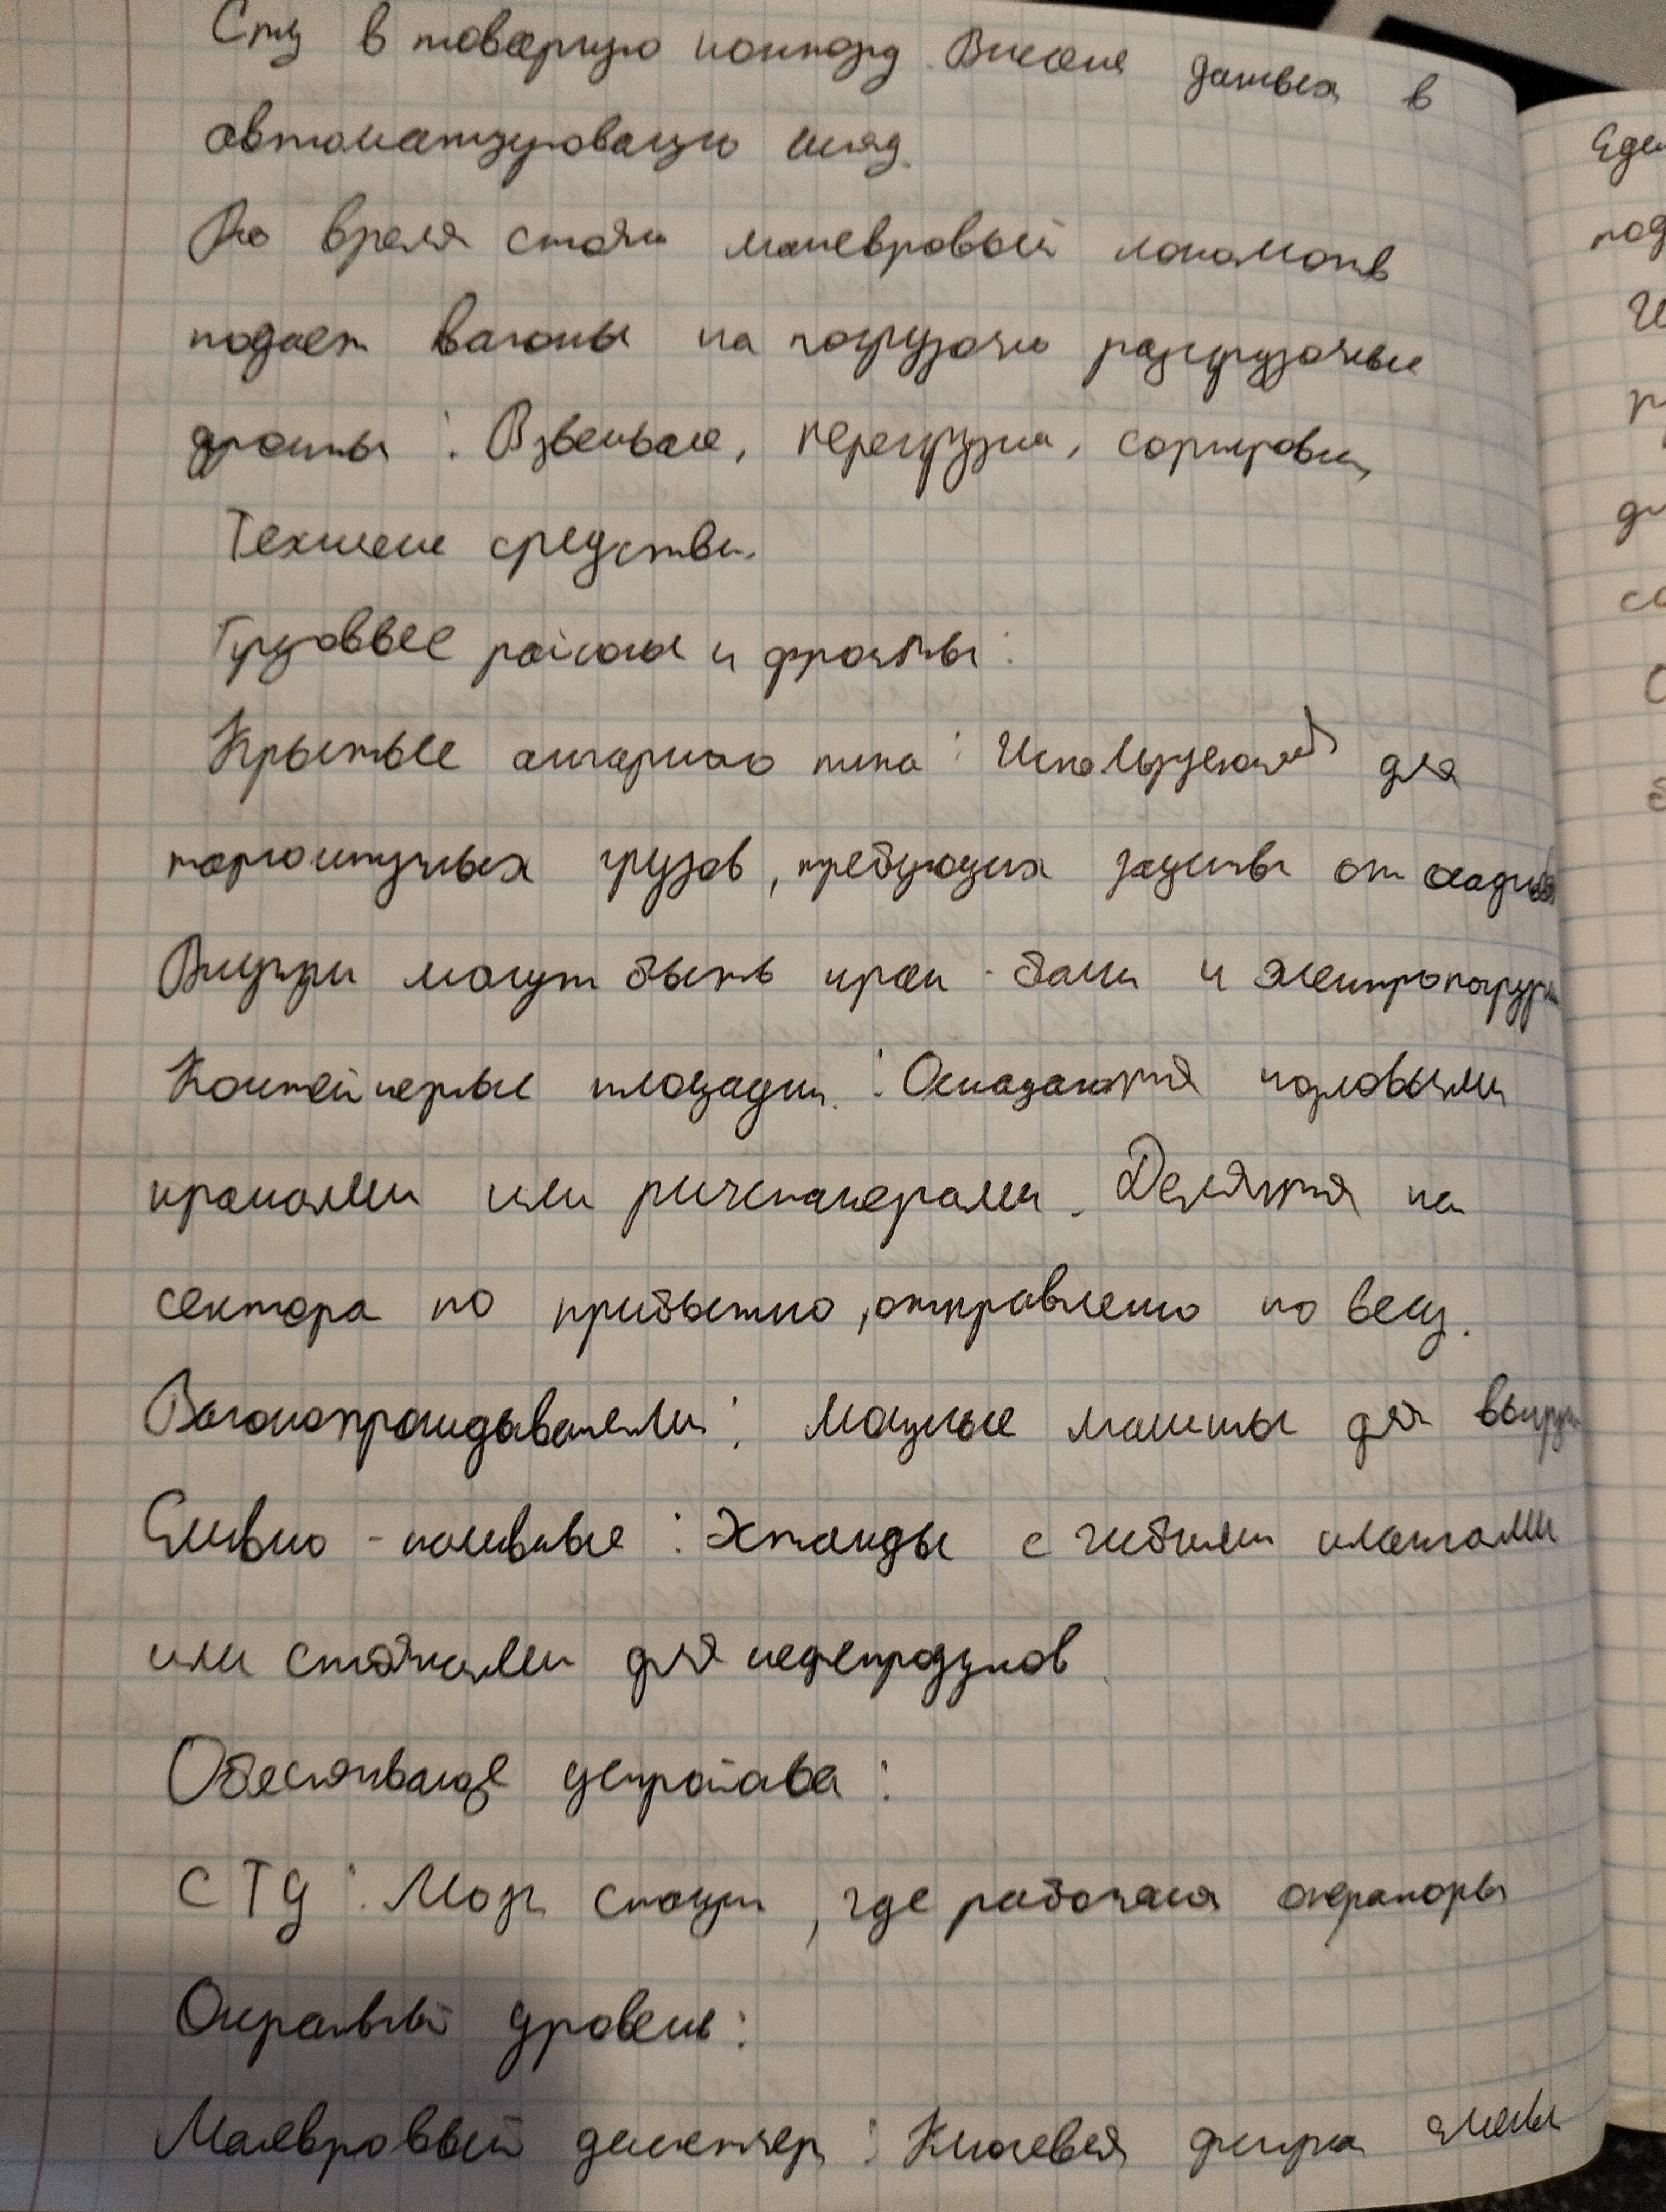 Спу в товарную контору. Внесение данных в
автоматизированую склад.
Во время стоян маневровый локомотив
подает вагоны на погрузочно разгрузочные
фронты : Взвешивание, перегрузка, сортировка,
Технические средства.
Грузовые районы и фронты :
Крытые ангарного типа : Используются для
тарноштучных грузов, требующих защиты от осадков
Внутри могут быть кран - балки и электропогрузчи
Контейнерные площадки : Оснащаются козловыми
кранами или ричстакерами. Делятся на
сектора по прибытию, отправлению по весу.
Вагоноопрокидыватели : Мощные машины для выгруз
Сливно - наливные : Эстакады с гибкими шлангами
или стояками для нефтепродуктов.
Обеспечивающие устройства :
СТЦ : Мозг станции, где работают операторы
Оперативный уровень :
Маневровый диспетчер : Ключевая фигура смены